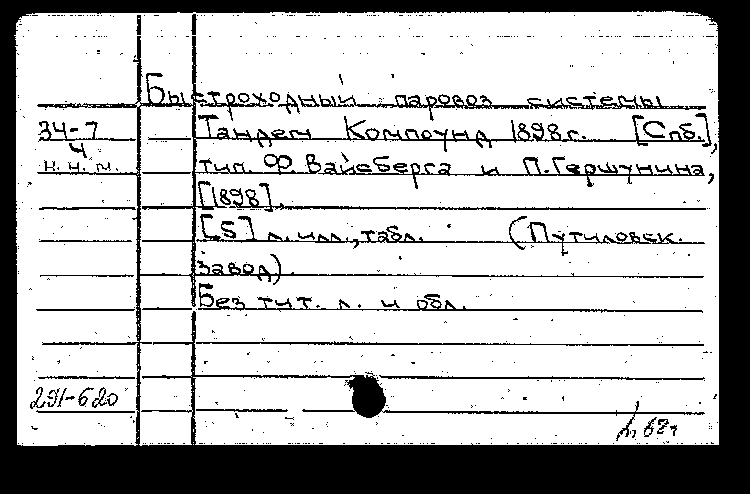 Быстроходный паровоз системы
34-7 Тандем Компоунд 1898 г. [Спб.],
4
н. н. м. тип. Ф. Вайсберга и П. Гершунина,
[1898].
[5] л. илл., табл. (Путиловск.
завод).
Без тит. л. и обл.
291-620